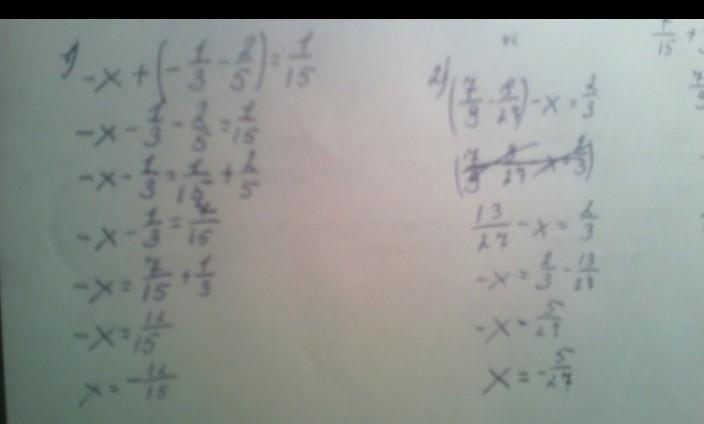 1) -x + (-1/3 - 2/5) = 1/15
-x - 1/3 - 2/5 = 1/15
-x - 1/3 = 1/15 + 2/5
-x - 1/3 = 7/15
-x = 7/15 + 1/3
-x = 12/15
x = -12/15
2) (7/9 - 8/27) - x = 2/3
13/27 - x = 2/3
-x = 2/3 - 13/27
-x = 5/27
x = -5/27